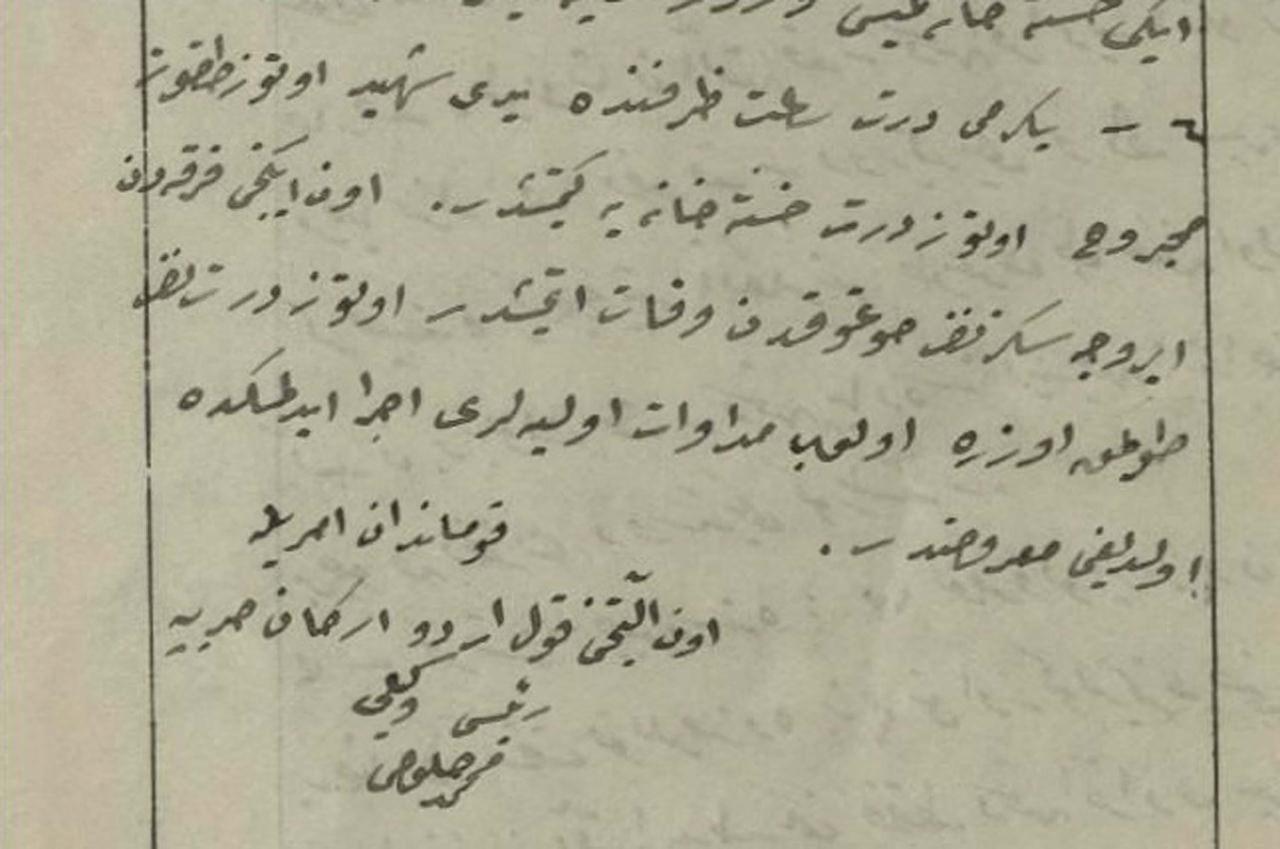 ایكی خسته خانه
٤ – یكرمی درت ساعت ظرفنده یدی شهید اوتوز طقوز
مجروح اوتوز درت خسته خانه یه كیتمشدر. اون ایكنجی فرقه دن
ایروجه سكز نفر صوغوقدن وفات ایتمشدر اوتوز درت نفر
طوكمق اوزره اولوب مداوات اولیه لری اجرا ایدلمكده
اولدیغی معروضدر.
قوماندان امریله
اون آلتنجی قول اردو اركان حربیه
رئیسی وكیلی
خلوصی